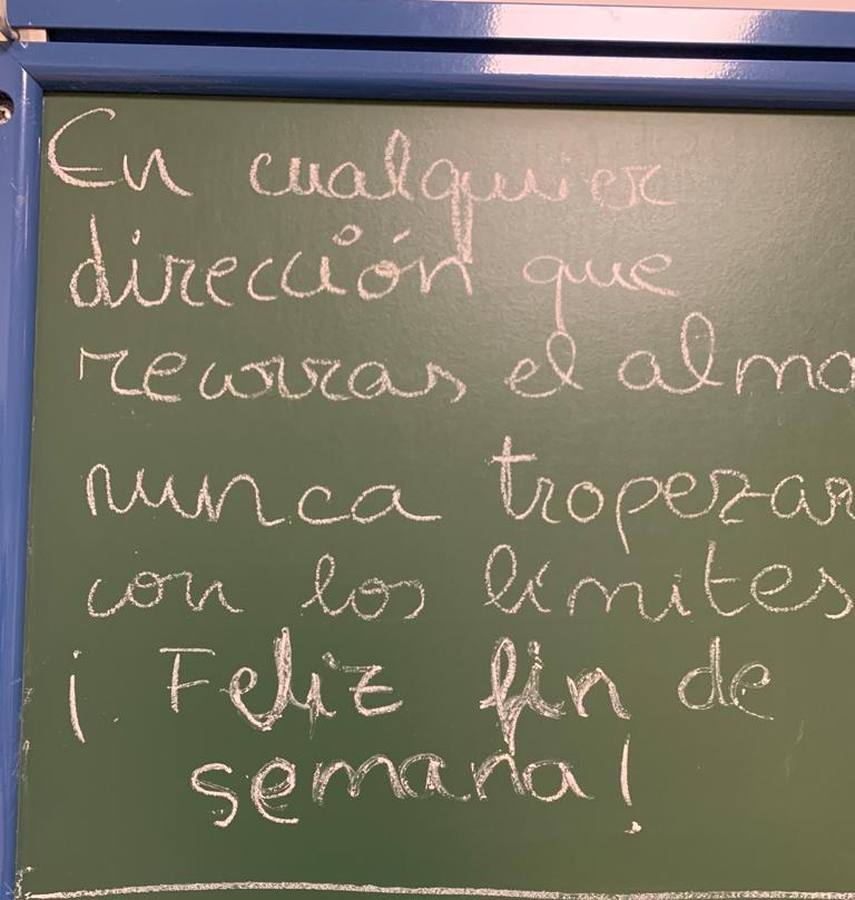 En cualquier
dirección que
recorras el alma
nunca tropezar
con los límites
¡Feliz fin de
semana!